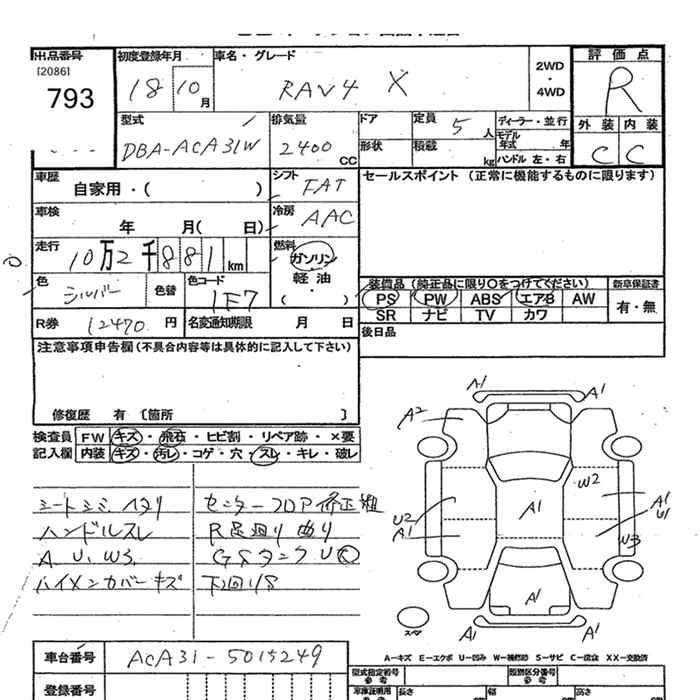 出品番号
[2086]
793
初度登録年月
18 10 月
車名・グレード
RAV4 X
2WD
・
4WD
評価点
R
外装 内装
C C
型式
DBA-ACA31W
排気量
2400 CC
ドア
定員 5 人
形状
積載 kg
ディーラー・並行
モデル年式 年
ハンドル 左・右
車歴
自家用・( )
シフト FAT
車検
年 月( 日)
冷房 AAC
走行
10万2千881 km
燃料
ガソリン
軽油
・( )・
色
シルバー
色替
色コード
1F7
R券 12470 円
名変通知期限 月 日
セールスポイント (正常に機能するものに限ります)
装備品 (純正品に限り○をつけてください)
PS PW ABS エアB AW
SR ナビ TV カワ
新車保証書
有・無
後日品
注意事項申告欄(不具合内容等は具体的に記入して下さい)
修復歴 有 [箇所 ]
検査員
記入欄
FW キズ・飛石・ヒビ割・リペア跡・×要
内装 キズ・汚レ・コゲ・穴・スレ・キレ・破レ
シートシミ ヘタリ
ハンドルスレ
A. U. W3.
センターフロア修正粗
R足廻り曲り
下回りS
A1
A1
A2
W2
A1
U2
A1
A1
U1
W3
A1
A1
スペア
A—キズ E—エクボ U—凹み W—補修跡 S—サビ C—腐食 XX—交換済
車台番号 ACA31-5015249
登録番号
型式指定番号
参考
類別区分番号
参考
車庫証明用
参考
長さ
幅
高さ